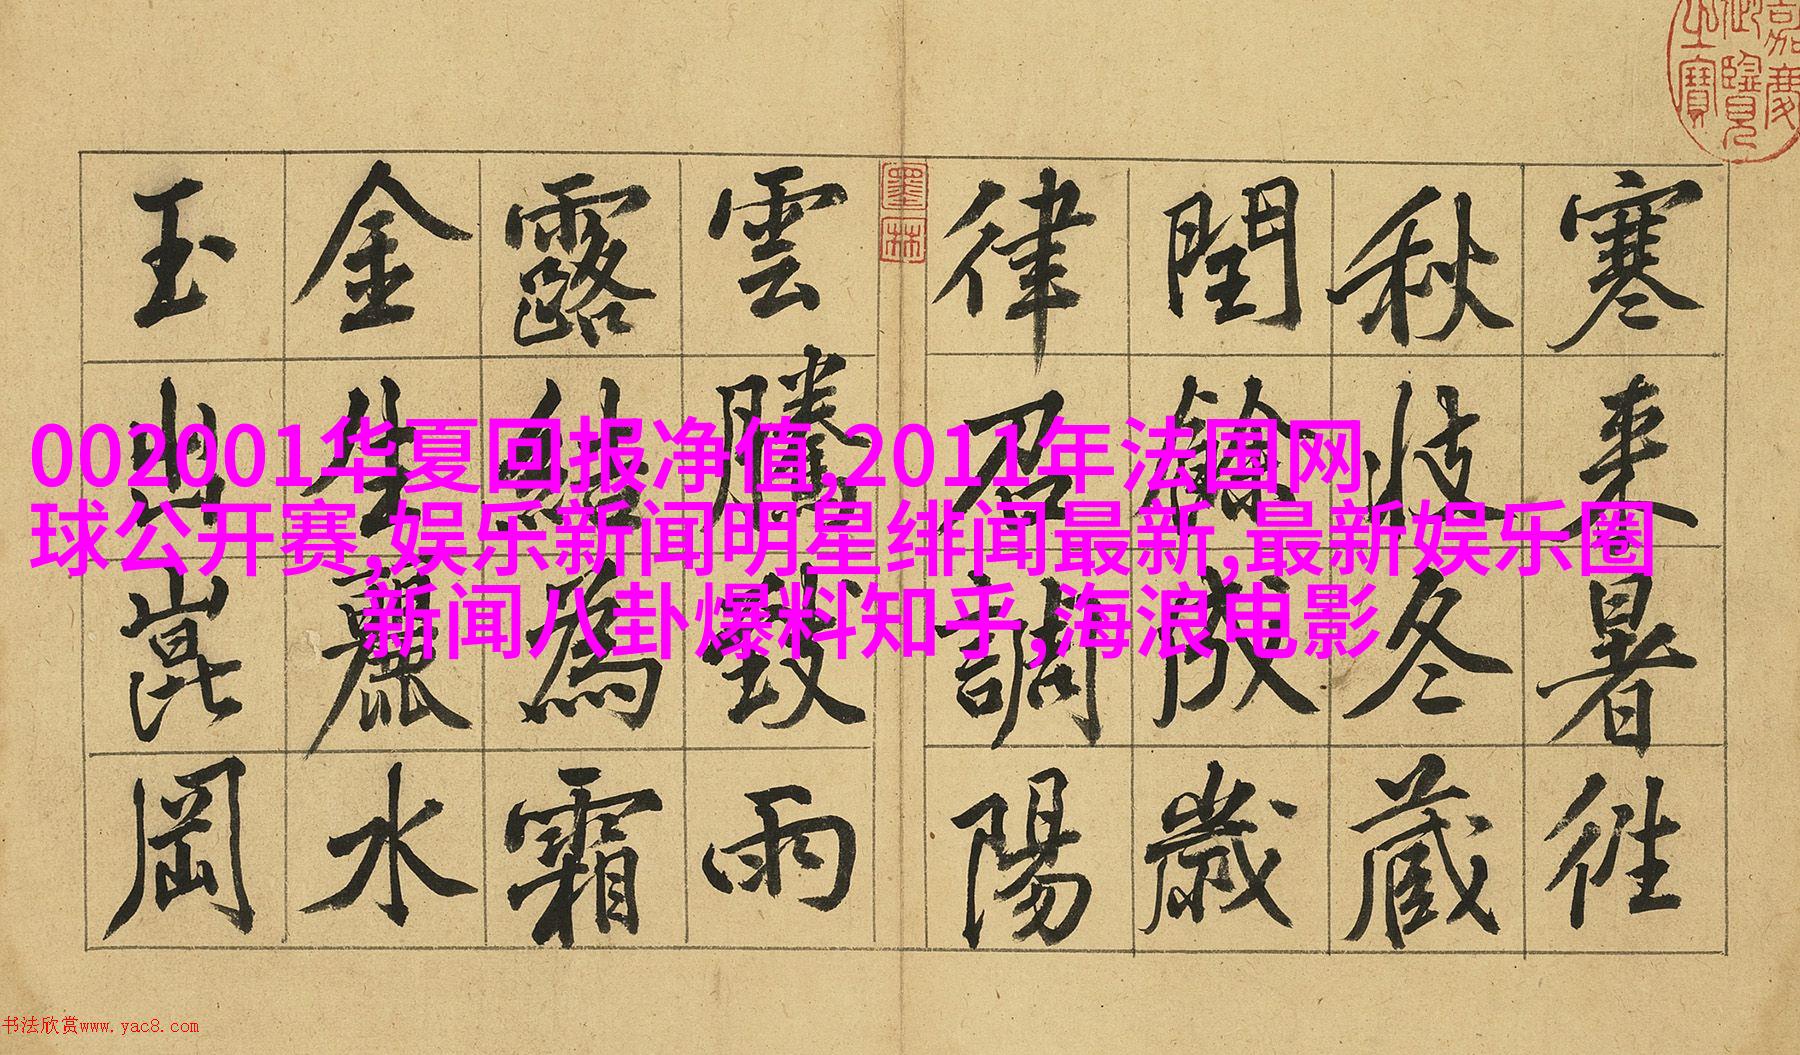 嘉慶
御覽
之寶
寒来暑徃
秋收冬蔵
閏餘成歲
律召調陽
墨林
雲騰致雨
露結為霜
金生麗水
玉出崑岡
002001华夏回报净值,2011年法国网
球公开赛,娱乐新闻明星绯闻最新,最新娱乐圈
新闻八卦爆料知乎,海浪电影
书法欣赏www.yac8.com